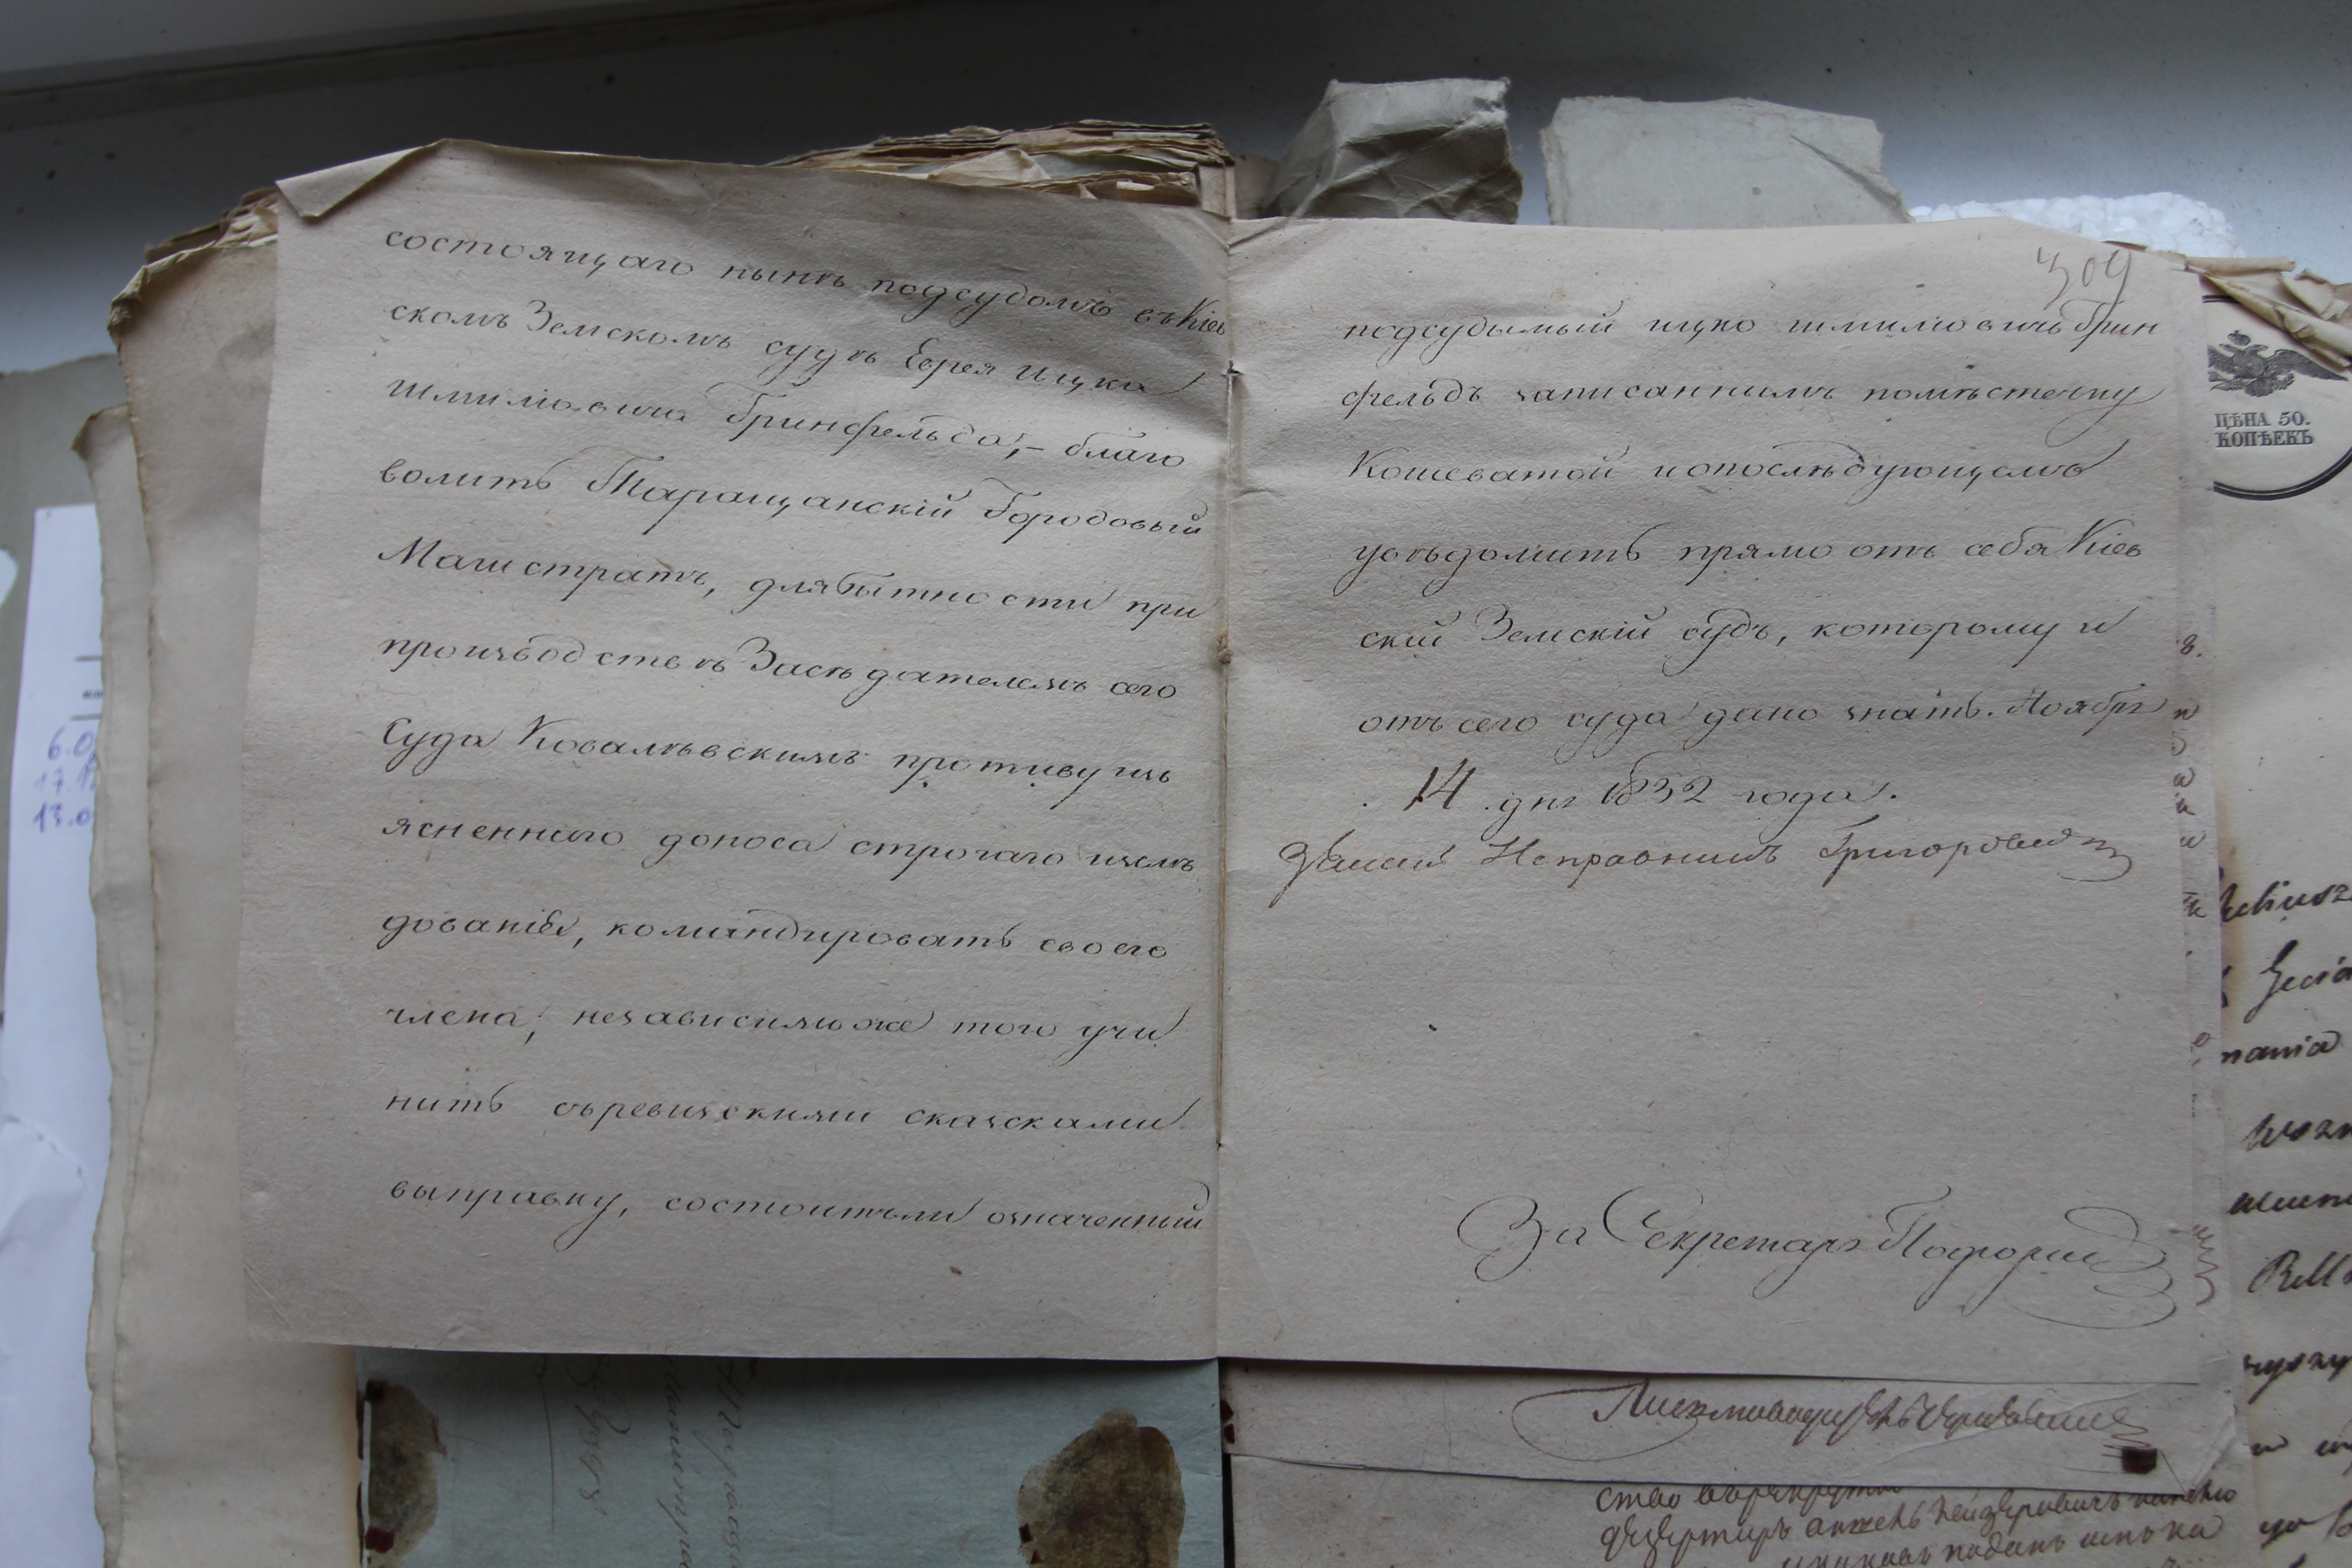 состоящаго нынѣ подсудомъ въ Кіев
скомъ Земскомъ судѣ Еврея Ицка
Шмиліовича Гринфельда, – благо
волитъ Таращанскій Городовый
Магистратъ, для бытности при
производствѣ Засѣдателемъ сего
Суда Ковалѣвскимъ противу изъ
ясненного доноса строгаго изслѣ
дованія, командировать своего
члена, независимо же того учи
нить съ ревизскими сказсками
выправку, состоитъ ли означенный
309
подсудымый Ицко Шмиліовичъ Грин
фельдъ записаннымъ по мѣстечку
Кошеватой и о послѣдующемъ
увѣдомить прямо отъ себя Кіев
скій Земскій судъ, которому и
отъ сего суда дано знать. Ноября
14 дня 1832 года.
Земскій Исправникъ Григорович
За Секретаря
ЦѢНА 50.
КОПѢЕКЪ
6.0
17.1
13.0